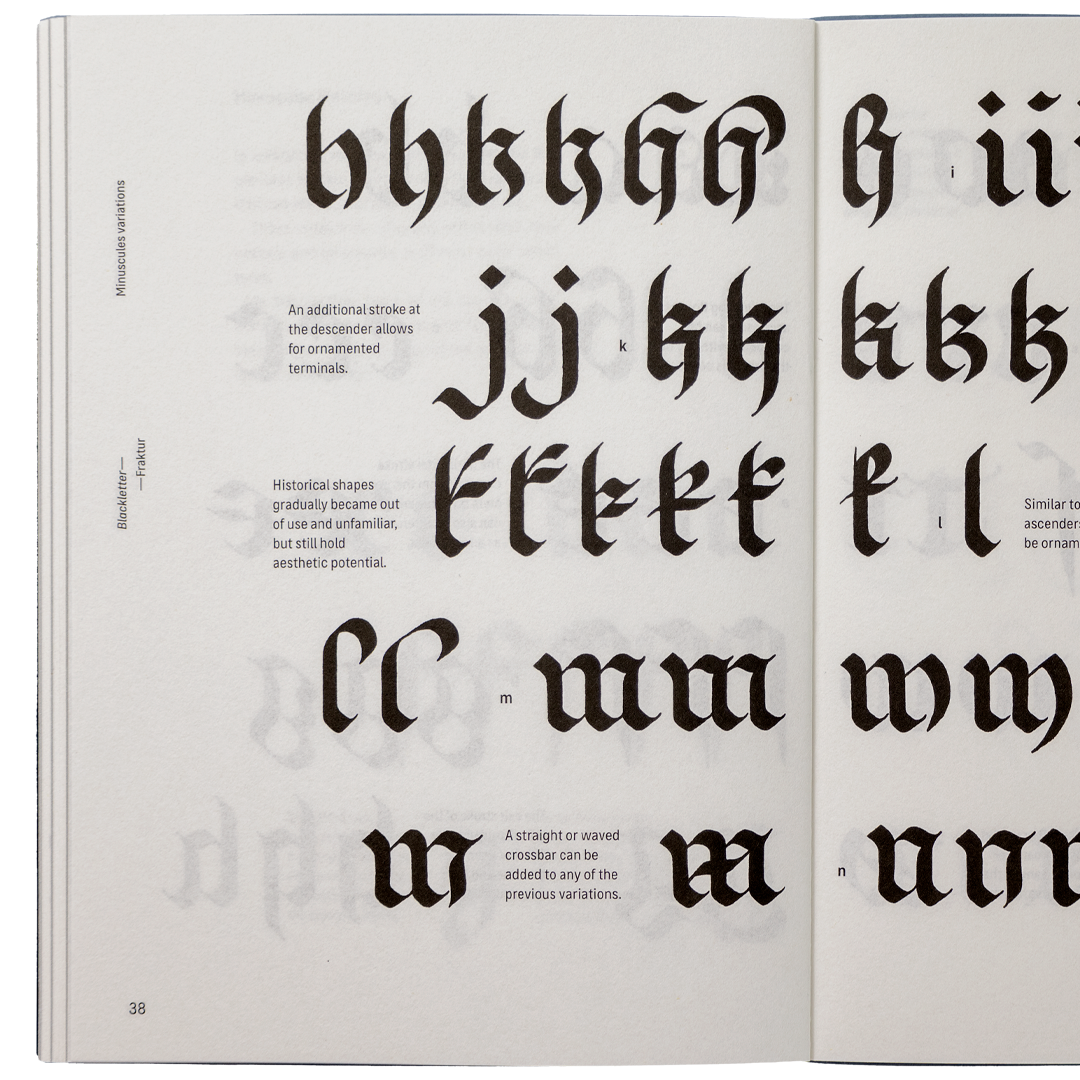 Minuscules variations
Blackletter—
—Fraktur
h h h h h h h i i i
An additional stroke at
the descender allows
for ornamented
terminals.
j j k k k k k k
Historical shapes
gradually became out
of use and unfamiliar,
but still hold
aesthetic potential.
k k k k k k l l
Similar to
be ornam
l l m m m m m
m
A straight or waved
crossbar can be
added to any of the
previous variations.
m n n n
38